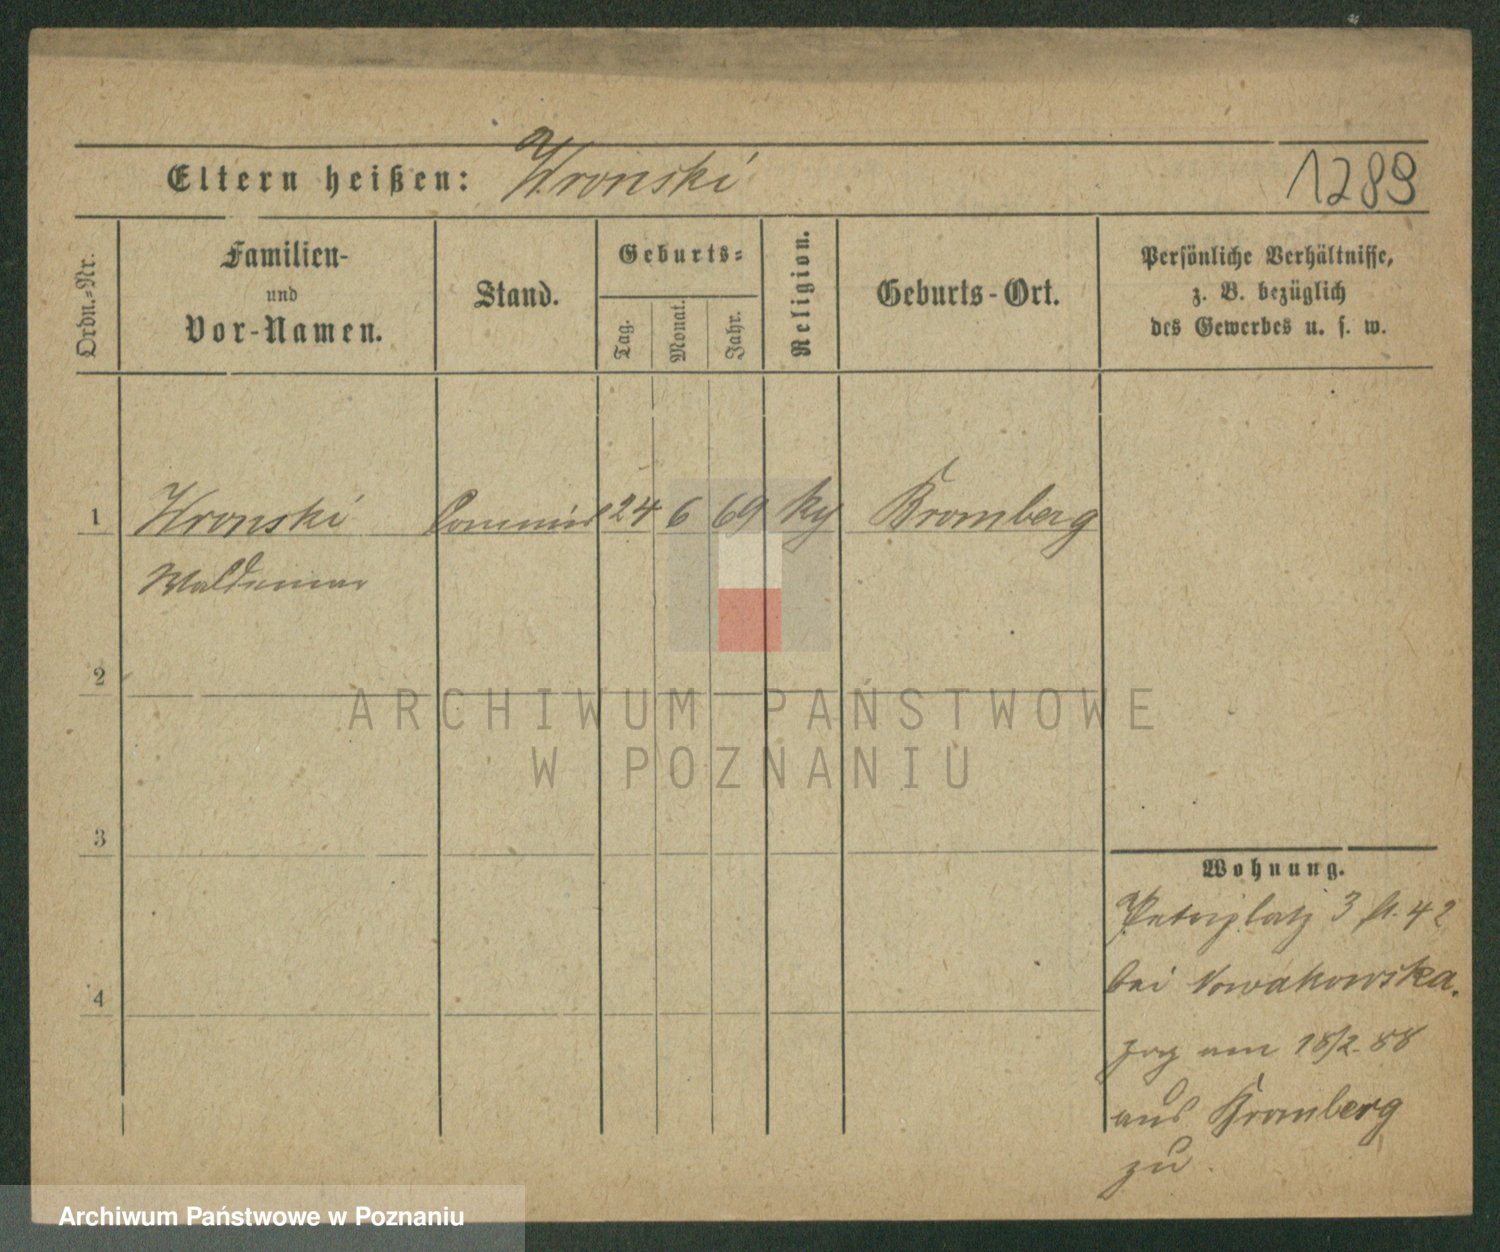 Eltern heißen: Wronski 1289
Ordn.-Nr.
Familien-
und
Vor-Namen.
Stand.
Geburts-
Tag.
Monat.
Jahr.
Religion.
Geburts-Ort.
Persönliche Verhältnisse,
z. B. bezüglich
des Gewerbes u. s. w.
1 Wronski Commis 24 6 69 Bromberg
Waldemar
2
3
4
Wohnung.
Petriplatz 3 42
bei Nowakowska.
zog am 18/2. 88
aus Bromberg
zu.
ARCHIWUM PAŃSTWOWE
W POZNANIU
Archiwum Państwowe w Poznaniu